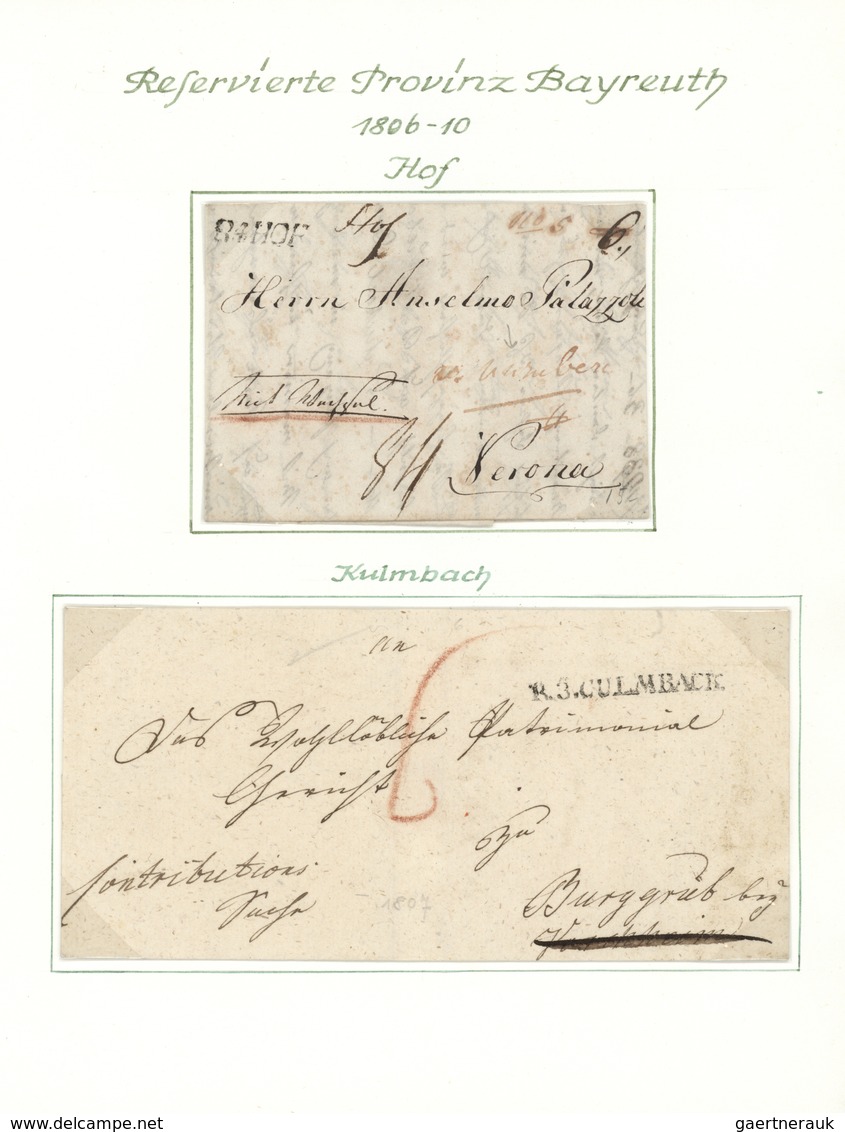 Reservierte Provinz Bayreuth
1806-10
Hof
R4HOF Hof No 5 6.
Herrn Anselmo Palazzoli
Mit Wechsel.
84 Verona
Kulmbach
An
R.3.CULMBACH.
Das Wohllöbliche Patrimonial
Gericht
6
Zu
Contributions
Sache
1807
Burggrub bey
delcampe.net
gaertnerauk